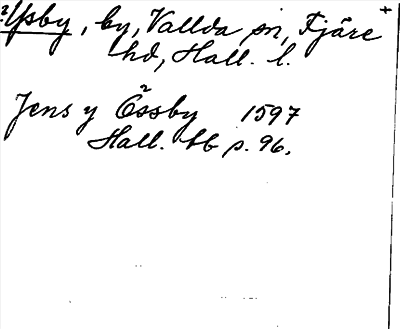 Ysby, by, Vallda sn, Fjäre +
hd, Hall. l.
Jens y Össby 1597
Hall. bb p. 96.